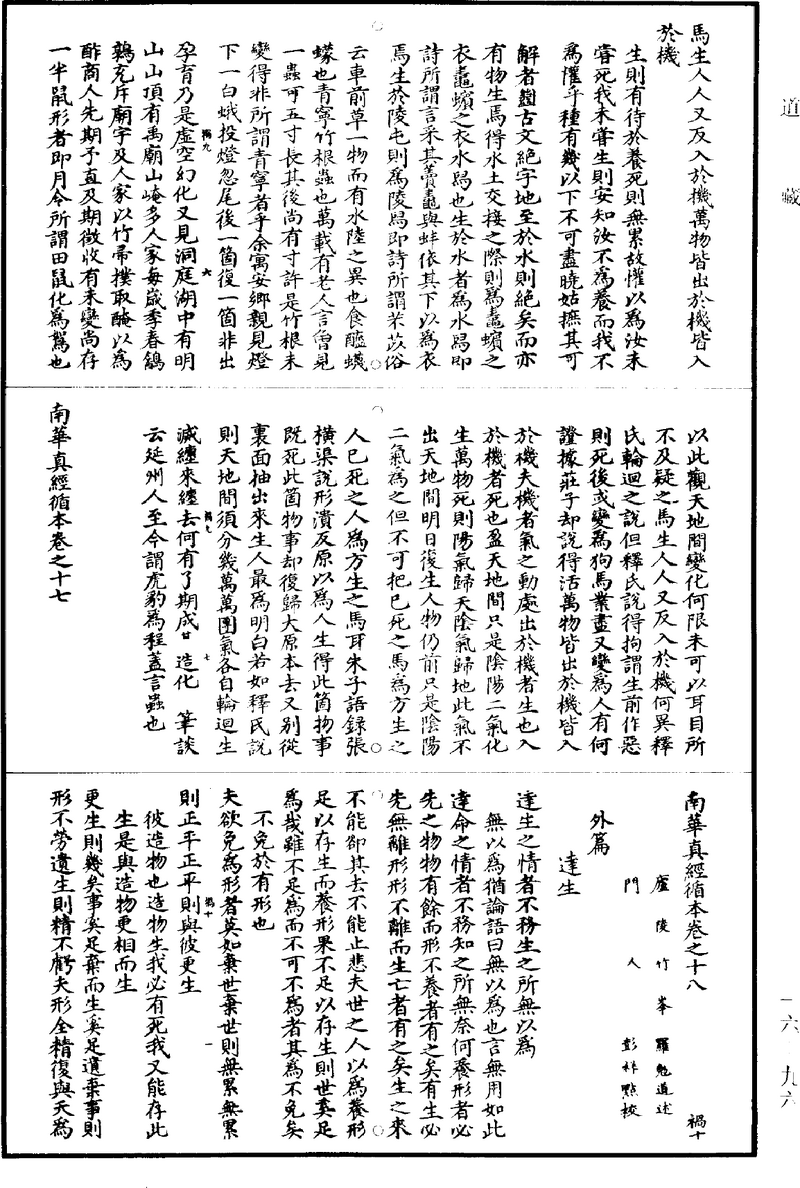 道藏
馬生人人又反入於機萬物皆出於機皆入
於機
生則有待於養死則無累故懽以為汝未
嘗死我未嘗生則安知汝不為養而我不
為懽乎種有幾以下不可盡曉姑摭其可
解者㡭古文絕字地至於水則絕矣而亦
有物生焉得水土交接之際則為鼃蠙之
衣鼃蠙之衣水舄也生於水者為水舄即
詩所謂言采其藚鼃與蚌依其下以為衣
焉生於陵屯則為陵舄即詩所謂芣苡俗
云車前草一物而有水陸之異也食醯蠛
蠓也青寧竹根蟲也萬載有老人言曾見
一蟲可五寸長其後尚有寸許是竹根未
變得非所謂青寧者乎余寓安鄉親見燈
下一白蛾投燈忽尾後一箇復一箇非出
孕育乃是虛空幻化又見洞庭湖中有明
山山頂有禹廟山崦多人家每歲季春鷂
鶉充斥廟宇及人家以竹帚撲取醃以為
酢商人先期予直及期徵收有未變尚存
一半鼠形者即月令所謂田鼠化為鴽也
以此觀天地間變化何限未可以耳目所
不及疑之馬生人人又反入於機何異釋
氏輪迴之說但釋氏說得拘謂生前作惡
則死後或變為狗馬業盡又變為人有何
證據莊子却說得活萬物皆出於機皆入
於機夫機者氣之動處出於機者生也入
於機者死也盈天地間只是陰陽二氣化
生萬物死則陽氣歸天陰氣歸地此氣不
出天地間明日復生人物仍前只是陰陽
二氣為之但不可把已死之馬為方生之
人已死之人為方生之馬耳朱子語錄張
橫渠說形潰反原以為人生得此箇物事
既死此箇物事却復歸大原本去又別從
裏面抽出來生人最為明白若如釋氏說
則天地間須分幾萬萬團氣各自輪迴生
滅纏來纏去何有了期成甚造化 筆談
云延州人至今謂虎豹為程蓋言蟲也
南華真經循本卷之十七
南華真經循本卷之十八 禍十
廬陵竹峯羅勉道述
門人彭祥點校
外篇
達生
達生之情者不務生之所無以為
無以為猶論語曰無以為也言無用如此
達命之情者不務知之所無奈何養形者必
先之物物有餘而形不養者有之矣有生必
先無離形形不離而生亡者有之矣生之來
不能卻其去不能止悲夫世之人以為養形
足以存生而養形果不足以存生則世奚足
為哉雖不足為而不可不為者其為不免矣
不免於有形也
夫欲免為形者莫如棄世棄世則無累無累
則正平正平則與彼更生
彼造物也造物生我必有死我又能存此
生是與造物更相而生
更生則幾矣事奚足棄而生奚足遺棄事則
形不勞遺生則精不虧夫形全精復與天為